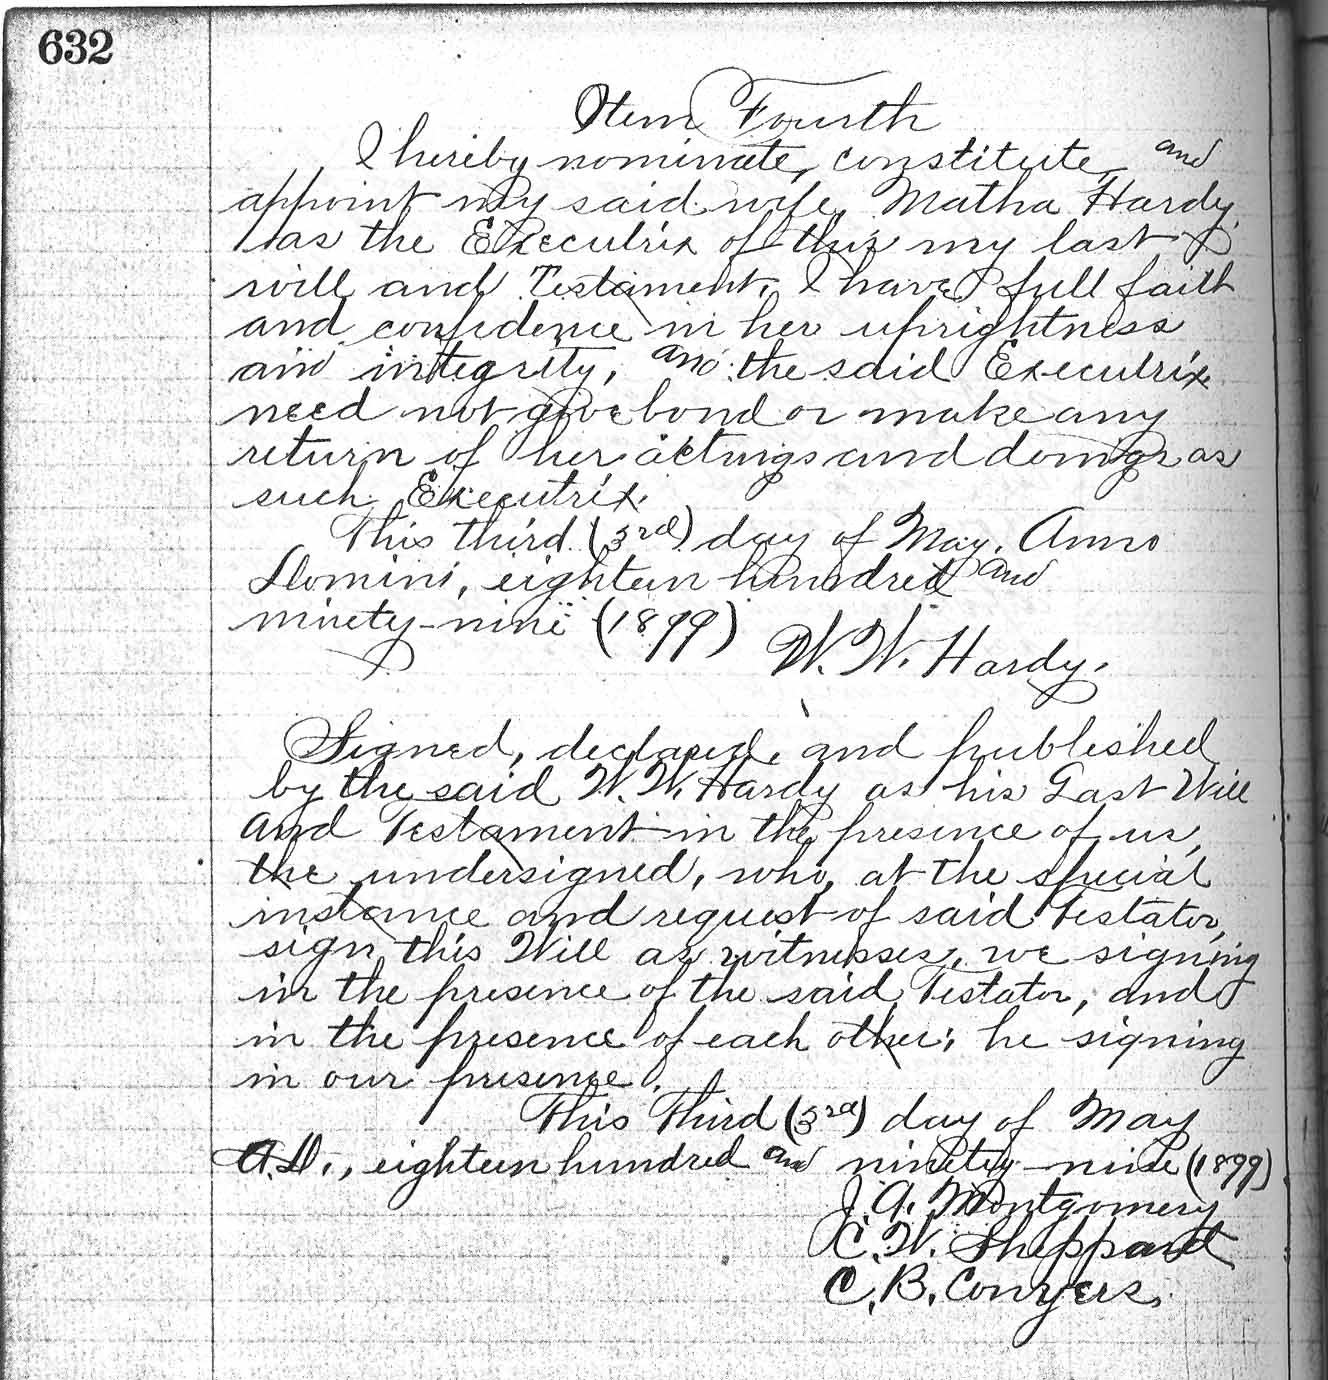 632
Item Fourth
I hereby nominate, constitute, and
appoint my said wife, Matha Hardy,
as the Executrix of this my last
will and Testament. I have full faith
and confidence in her uprightness
and integrity, and the said Executrix
need not give bond or make any
return of her actings and doings as
such Executrix.
This third (3rd) day of May, Anno
Domini, eighteen hundred and
ninety-nine (1899)
W. W. Hardy.
Signed, declared, and published
by the said W. W. Hardy as his Last Will
and Testament in the presence of us,
the undersigned, who, at the special
instance and request of said Testator,
sign this Will as witnesses, we signing
in the presence of the said Testator, and
in the presence of each other; he signing
in our presence.
This Third (3rd) day of May
A.D., eighteen hundred and ninety-nine (1899)
J. A. Montgomery
C. W. Sheppard
C. B. Conyers.